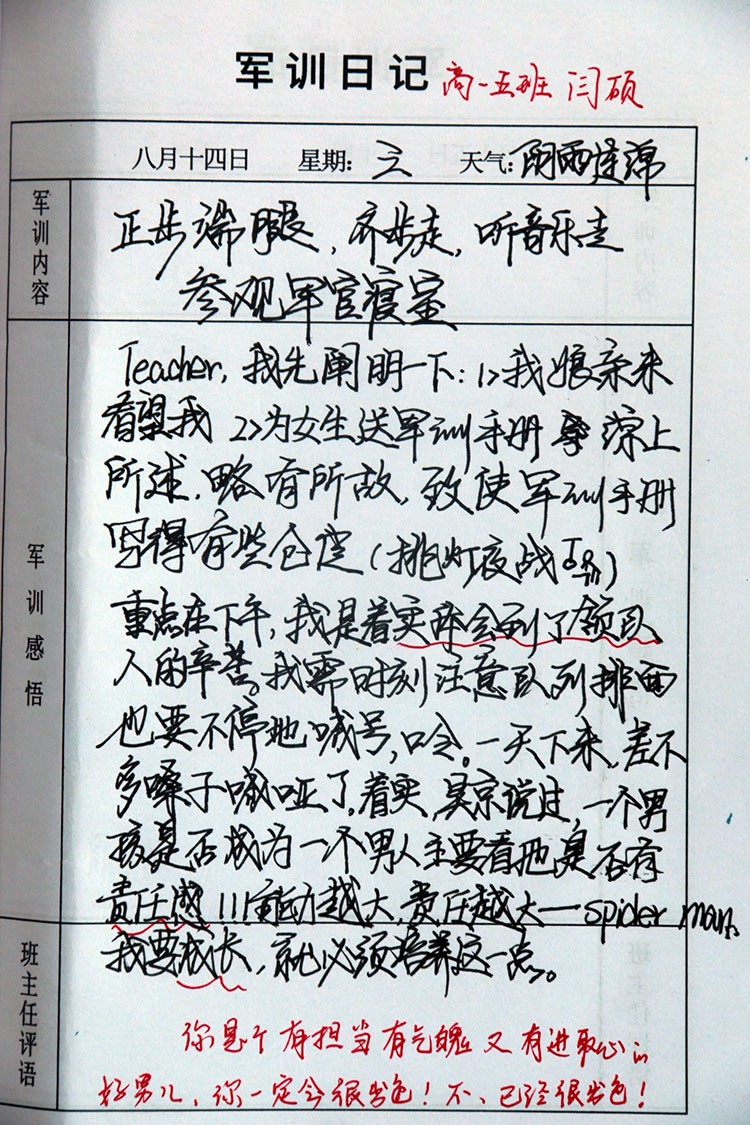 军训日记 高一五班 闫硕
八月十四日 星期:三 天气:阴雨连绵
军训内容
正步端腿,齐步走,听音乐走
参观军官寝室
军训感悟
Teacher,我先阐明一下:1>我娘亲来
看望我 2>为女生送军训手册 综上
所述,略有所故,致使军训手册
写得有些仓促(挑灯夜战)
重点在下午,我是着实体会到了领队
人的辛苦。我需时刻注意队列排面
也要不停地喊号,口令。一天下来,差不
多嗓子喊哑了,着实,吴京说过,一个男
孩是否成为一个男人主要看他是否有
责任感!!!能力越大,责任越大—spider man.
我要成长,就必须培养这一点。
班主任评语
你是个有担当有气魄又有进取心的
好男儿、你一定会很出色!不、已经很出色!